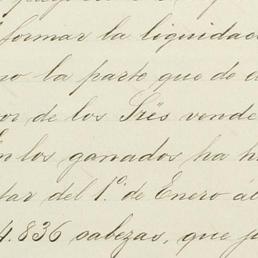 formar la liquidac
no la parte que de a
or de los Sres vende
En los ganados ha h
tar del 1º de Enero al
4.836 cabezas, que p